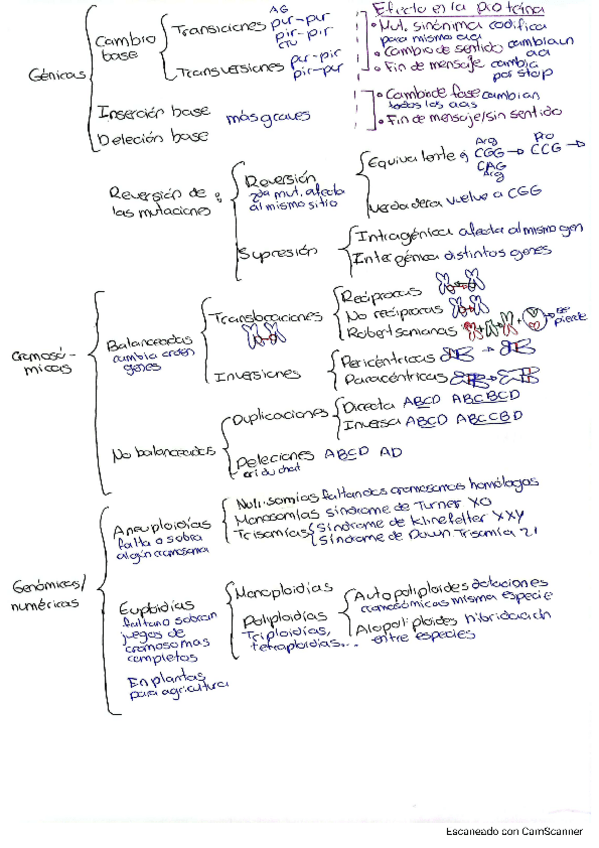 Génicas
Cambio base
Transiciones
AG
pur-pur
pir-pir
CTU
Transversiones
pur-pir
pir-pur
Inserción base
Deleción base
más graves
Efecto en la proteína
• Mut. sinónima codifica
para mismo aa
• Cambio de sentido cambia un
aa
• Fin de mensaje cambia
por stop
• Cambio de fase cambian
todos los aas
• Fin de mensaje/sin sentido
Reversión de
las mutaciones
Reversión
2da mut. afecta
al mismo sitio
Equivalente
Arg
CGG → CCG →
Pro
CAG
Arg
verdadera vuelve a CGG
Supresión
Intragénica afecta al mismo gen
Intergénica distintos genes
Cromosó-
micas
Balanceadas
cambia orden
genes
Translocaciones
Recíprocas
No recíprocas
Robertsonianas
se
pierde
Inversiones
Pericéntricas
Paracéntricas
No balanceadas
Duplicaciones
Directa ABCD ABCBCD
Inversa ABCD ABCCBD
Deleciones ABCD AD
cri du chat
Genómicas/
numéricas
Aneuploidías
falta o sobra
algún cromosoma
Nulisomías faltan dos cromosomas homólogos
Monosomías síndrome de Turner XO
Trisomías
Síndrome de Klinefelter XXY
Síndrome de Down Trisomía 21
Euploidías
faltan o sobran
juegos de
cromosomas
completos
En plantas
para agricultura
Monoploidías
Poliploidías
Triploidías,
tetraploidías...
Autopoliploides dotaciones
cromosómicas misma especie
Alopoliploides hibridación
entre especies
Escaneado con CamScanner